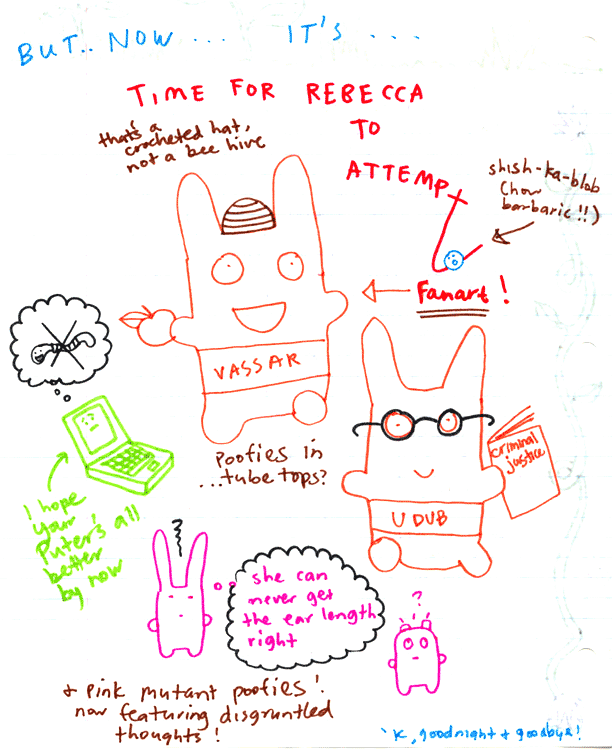 BUT.. NOW ... IT'S ...
TIME FOR REBECCA
TO
ATTEMPT
that's a
crocheted hat,
not a bee hive
shish-ka-blob
(how
barbaric!!)
Fanart!
VASSAR
criminal
justice
Poofies in
...tube tops?
U DUB
I hope
your
Puter's all
better
by now
?
she can
never get
the ear length
right
?
+ pink mutant poofies!
now featuring disgruntled
thoughts!
'K, goodnight + goodbye!